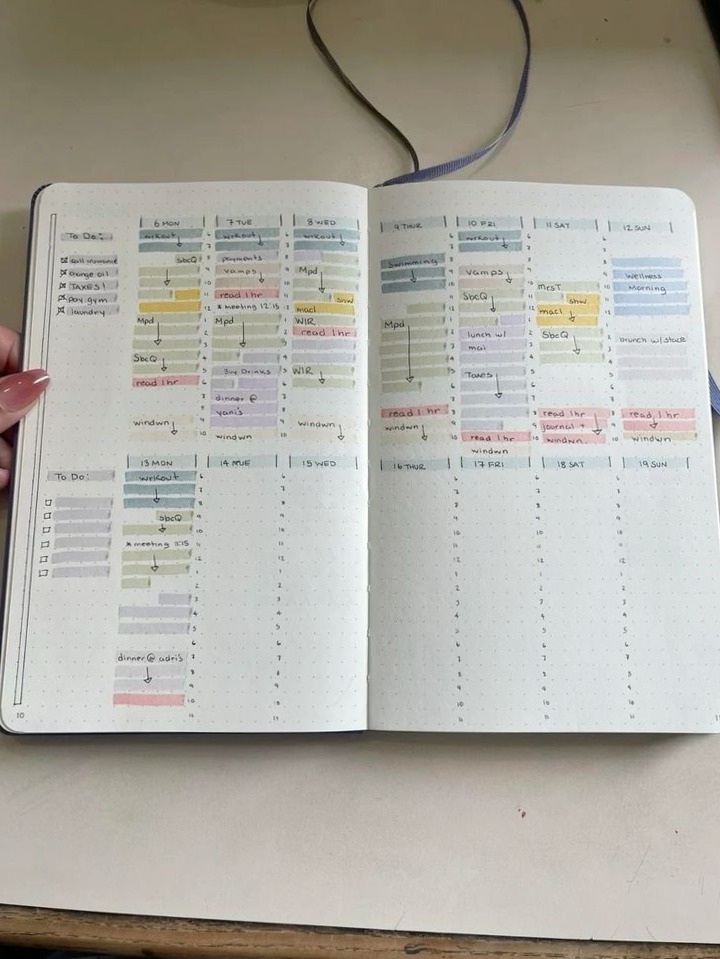 6 MON 7 TUE 8 WED
To Do:
call insurance
change oil
TAXES!
pay gym
laundry
wrkout
sbcQ
Mpd
SbcQ
read 1 hr
windwn
wrkout
payments
vamps
read 1 hr
* meeting 12:15
Mpd
Buy Drinks
dinner @
yani's
windwn
wrkout
Mpd
shw
mac1
WIR
read 1hr
WIR
windwn
9 THUR 10 FRI 11 SAT 12 SUN
Swimming
Mpd
read 1 hr
windwn
wrkout
vamps
SbcQ
lunch w/
mai
Taxes
read 1 hr
windwn
mrsT
shw
mac1
SbcQ
read 1hr
journal +
windwn
Wellness
Morning
brunch w/
read 1 hr
windwn
To Do:
13 MON 14 TUE 15 WED
wrkout
sbcQ
* meeting 11:15
dinner @ adri's
16 THUR 17 FRI 18 SAT 19 SUN
10